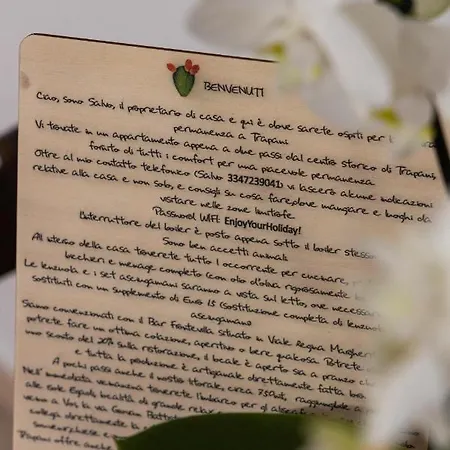 BENVENUTI
Ciao, sono Salvo, il proprietario di casa e qui è dove sarete ospiti per
permanenza a Trapani
Vi trovate in un appartamento appena a due passi dal centro storico di Trapani,
fornito di tutti i comfort per una piacevole permanenza
Oltre al mio contatto telefonico (Salvo 3347239041) vi lascerò alcune indicazioni
relative alla casa e non solo, e consigli su cosa fare, dove mangiare e luoghi da
visitare nelle zone limitrofe.
Password WIFI: EnjoyYourHoliday!
L'interruttore del boiler è posto appena sotto il boiler stesso
Sono ben accetti animali
All'interno della casa troverete tutto l'occorrente per cucinare,
bicchieri e menage completo (con olio d'oliva rigorosamente
Le lenzuola e i set asciugamani saranno a vista sul letto, ove necessar
sostituiti con un supplemento di Euro 15 (sostituzione completa di lenzuol
asciugamano
Siamo convenzionati con il Bar Fontevilla situato in Viale Regina Margher
potrete fare un ottima colazione, aperitivo o bere qualcosa. Potrete
uno sconto del 20% sulla ristorazione, il locale è aperto sia a pranzo che
e tutta la produzione è artigianale direttamente fatta
A pochi passi anche il nostro litorale, circa
Nell'immediate vicinanze troverete l'imbarco per gli
alle isole Egadi, località di grande
verso
collega direttamente la
Trapani offre anche